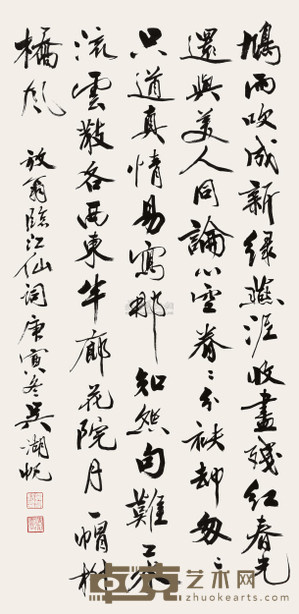 鳩雨吹成新緑燕泥收盡殘紅春光
還與美人同論心空眷〻分袂却匆〻
只道真情易寫那知怨句難工水
流雲散各西東半廊花院月一帽柳
橋風 放翁臨江仙詞庚寅冬吳湖帆
卓克艺术网
www.zhuokearts.com